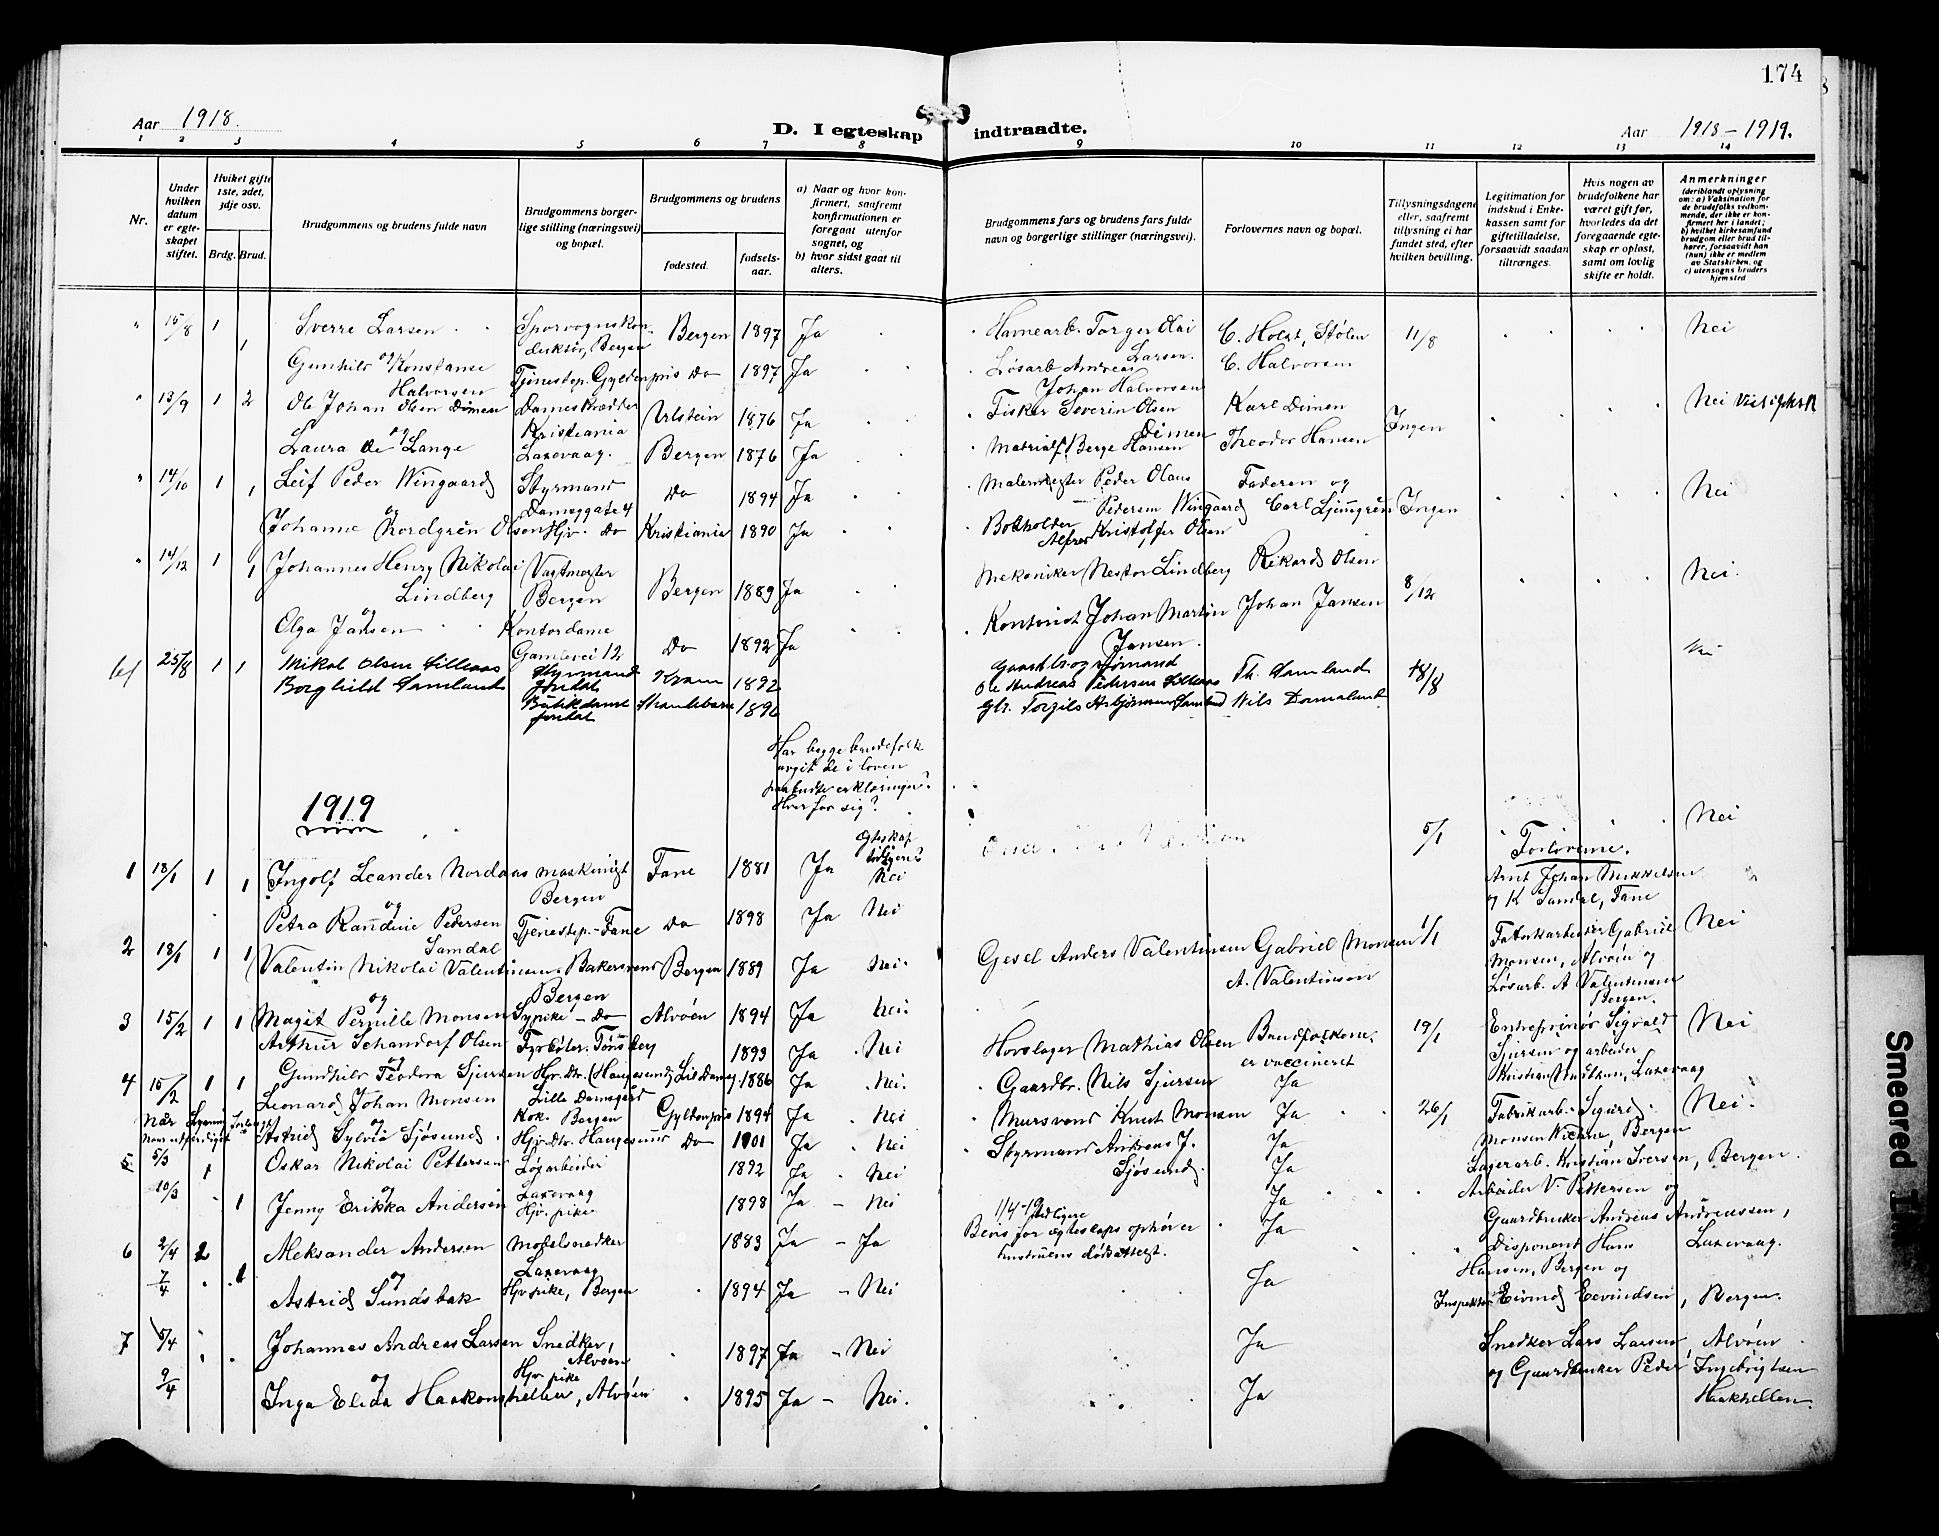 174
Aar 1918.
D. I egteskap indtraadte.
Aar 1918-1919.
1 2 3 4 5 6 7 8 9 10 11 12 13 14
Nr.
Under hvilken datum er egteskapet stiftet.
Hvilket gifte 1ste, 2det, 3dje osv.
Brdg. Brud.
Brudgommens og brudens fulde navn
Brudgommens borgerlige stilling (næringsvei) og bopæl.
Brudgommens og brudens
fødested.
fødselsaar.
a) Naar og hvor konfirmert, saafremt konfirmationen er foregaat utenfor sognet, og
b) hvor sidst gaat til alters.
Brudgommens fars og brudens fars fulde navn og borgerlige stillinger (næringsvei).
Forlovernes navn og bopæl.
Tillysningsdagene eller, saafremt tillysning ei har fundet sted, efter hvilken bevilling.
Legitimation for indskud i Enkekassen samt for giftetilladelse, forsaavidt saadan tiltrænges.
Hvis nogen av brudefolkene har været gift før, hvorledes da det foregaaende egteskap er opløst, samt om lovlig skifte er holdt.
Anmerkninger (deriblandt oplysning om: a) Vaksination for de brudefolks vedkommende, der ikke er konfirmert her i landet; b) hvilket kirkesamfund brudgom eller brud tilhører, forsaavidt han (hun) ikke er medlem av Statskirken, og c) utensogns bruders hjemsted
" 15/8 1 Sverre Larsen Sporvognskon- Bergen 1897 Ja Havnearb. Torger Olai C. Holst, Stølen 11/8 Nei
1 og duktør, Bergen Larsen.
Gunhild Konstanse Tjenestep. Gyldenpris Do 1897 Ja Løsarb Andreas C. Halvorsen
Halvorsen Johan Halvorsen
" 13/9 1 2 Ole Johan Olsen Dimen Ulstein 1876 Ja Fisker Severin Olsen Karl Dimen Ingen Nei
og Kristiania Dimen
Laura de Lange Laxevaag. Bergen 1876 Ja Berge Hansen Theodor Hansen
" 14/10 1 1 Leif Peder Wingaard Styrmand Do 1894 Ja Malermester Peder Olaus Faderen og Ingen Nei
og Damsggate 4 Pedersen Wingaard Carl Ljunggrén
Johanne Nordgrén Olson Hjv. Do Kristiania 1890 Ja Alfred Kristoffer Olsen
" 14/12 1 1 Johannes Henry Nikolai Vagtmester Bergen 1889 Ja Mekaniker Nestor Lindberg Rikard Olsen 8/12 Nei.
Lindberg Bergen
og
Olga Jansen Kontordame Do 1892 Ja Kontorist Johan Martin Johan Jansen
Gamlevei 12 Jansen.
25/8 1 1 Mikal Olsen Lillaas Styrmand Kvam 1892 Gaardbr. og sjømand Th. Samland 18/8 Nei
Jondal Ole Andreas Pedersen Lillaas
Borghild Samland Butikdame Strandebarm 1896 Gbr. Torgils Asbjørnsen Samland Nils Domalund
Jondal
Har begge brudefolk
avgit de i loven
paabudte erklæringer?
Hver for sig?
1919
Egteskap
tidligere?
1 18/1 1 1 Ingolf Leander Nordaas Maskinist Fane 1881 Ja Nei 5/1 Forloverne. Nei
og Bergen Arnt Johan Mikkelsen
Petra Randine Pedersen Tjenestep.-Fane Do 1898 Ja Nei og K Samdal, Fane
Samdal
2 18/1 1 1 Valentin Nikolai Valentinsen Bakersvend Bergen 1889 Ja Nei. Gesel Anders Valentinsen Gabriel Monsen 1/1 Fabrikarbeider Gabriel Nei
og Bergen A. Valentinsen Monsen, Alvøen og
Magit Pernille Monsen Sypike - Do Alvøen 1894 Ja Nei. Løsarb. A Valentinsen
Bergen.
3 15/2 1 1 Arthur Schandorf Olsen Fyrbøter. Tønsberg 1893 Ja Nei Hovslager Mathias Olsen Brudfolkene 19/1 Entreprenør Sigvald Nei
og er vaccineret Sjursen og arbeider
Gundhild Teodora Sjursen Hjv. Dtr. (Haugesund) 1886 Ja Nei. Gaardbr. Nils Sjursen Ja Kristian Laxevaag
Lille Damsgård
4 15/2 1 1 Leonard Johan Monsen Kok. Bergen Gyldenpris 1894 Ja Nei Mursvend Knut Monsen Ja 26/1 Fabrikarb. Sigurd Nei.
og Monsen Bergen
Astrid Sylvia Sjøsund Hjv. Dtr. Haugesund Do 1901 Ja Nei Styrmand Andreas J. Ja Lagerarb. Kristian Iversen, Bergen.
Sjøsund.
5 5/3 1 Oskar Nikolai Pettersen Løsarbeider 1892 Ja Nei Ja Arbeider V. Pettersen og
10/3 1 og Laxevaag
Jenny Erikka Andersen Hjv. pike 1898 Ja - Nei Ja Gaardbruker Andreas Andreassen,
1/4-19
6 2/4 2 Aleksander Andersen Modelsnedker 1883 Ja - Ja Bevis for tidligere egteskaps ophør er Ja Disponent Hans Laxevaag.
7/4 1 og Laxevaag hustruens dødsattest. Hansen, Bergen og
Astrid Sundsbak Hjv. pike, Bergen 1894 Ja - Nei Ja Inspektør Eivind Eevindsen, Bergen.
7 5/4 Johannes Andreas Larsen Snedker, 1897 Ja - Nei Ja Snedker Lars Larsen, Alvøen
og Alvøen
9/4 Inga Elida Haakonshellen, Hjv. pike Alvøen 1895 Ja - Nei. Ja og Gaardbruker Peder Ingebrigtsen
Haakhellen.
Smeared